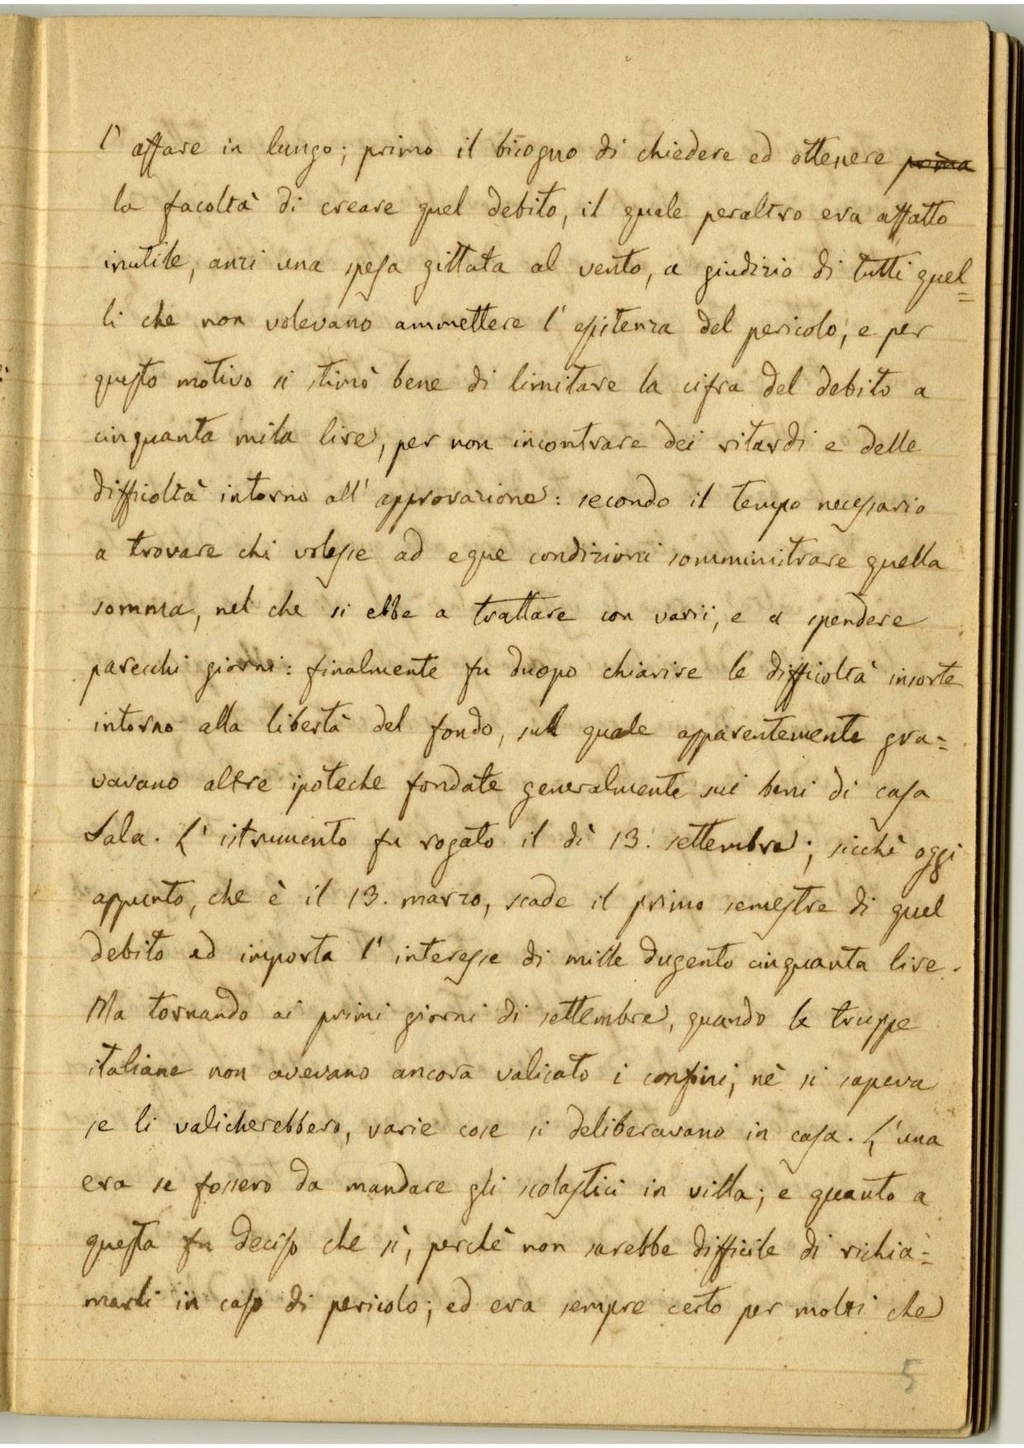 l' affare in lungo; primo il bisogno di chiedere ed ottenere prima
la facoltà di creare quel debito, il quale peraltro era affatto
inutile, anzi una spesa gittata al vento, a giudizio di tutti quel=
li che non volevano ammettere l' esistenza del pericolo, e per
questo motivo si stimò bene di limitare la cifra del debito a
cinquanta mila lire, per non incontrare dei ritardi e delle
difficoltà intorno all' approvazione: secondo il tempo necessario
a trovare chi volesse ad eque condizioni somministrare quella
somma, nel che si ebbe a trattare con varii, e a spendere
parecchi giorni: finalmente fu duopo chiarire le difficoltà insorte
intorno alla libertà del fondo, sul quale apparentemente gra=
vavano altre ipoteche fondate generalmente sui beni di casa
Sala. L' istrumento fu rogato il dì 13. settembre; sicchè oggi
appunto, che è il 13. marzo, scade il primo semestre di quel
debito ed importa l' interesse di mille dugento cinquanta lire.
Ma tornando ai primi giorni di settembre, quando le truppe
italiane non avevano ancora valicato i confini, nè si sapeva
se li valicherebbero, varie cose si deliberavano in casa. L' una
era se fossero da mandare gli scolastici in villa; e quanto a
questa fu deciso che sì, perchè non sarebbe difficile di richia=
marli in caso di pericolo; ed era sempre certo per molti che
5